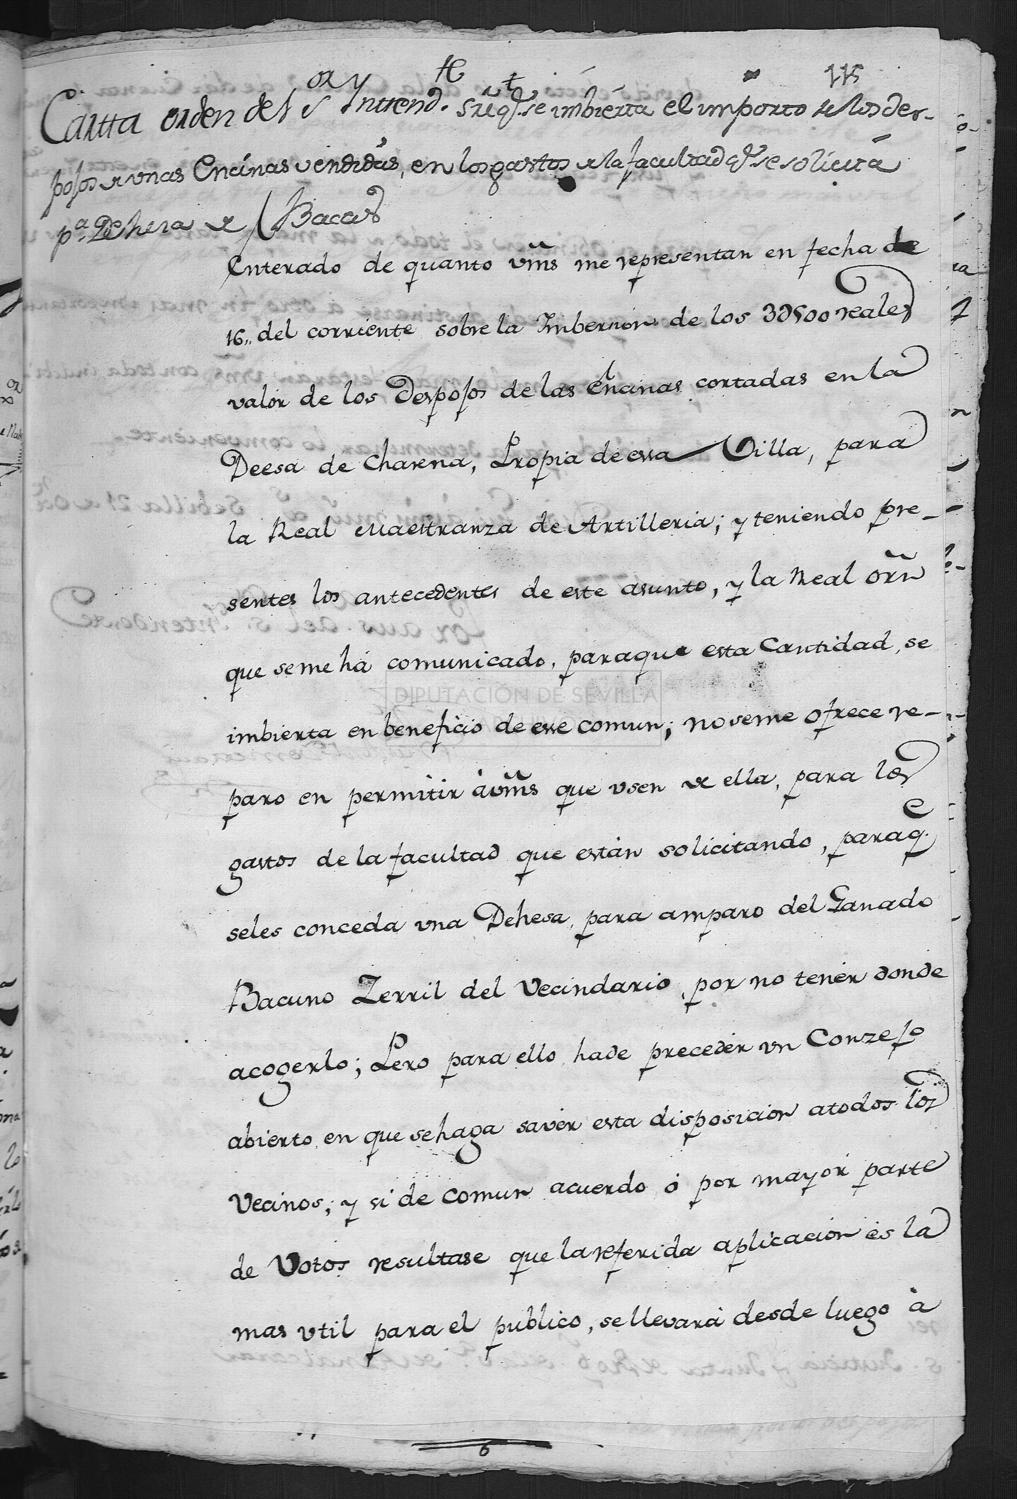 115
Cartta orden del Sor Yntend.te sre q.e se imbierta el importo de los des-
pojos de vnas Encinas vendidas, en los gastos de la facultad q.e se solicita
p.a Dehesa de Bacas
Enterado de quanto vm̃s me representan en fecha de
16,, del corriente sobre la Imbersion de los 3D500 reales
valor de los despojos de las encinas cortadas en la
Deesa de Charena, Propia de essa Villa, para
la Real Maestranza de Artilleria; y teniendo pre-
sentes los antecedentes de este asunto, y la Real orñ
que se me há comunicado, paraque esta Cantidad, se
imbierta en beneficio de esse comun; no seme ofrece re-
paro en permitir á vm̃s que vsen de ella, para los
gastos de la facultad que están solicitando, paraq.e
seles conceda vna Dehesa, para amparo del Ganado
Bacuno Zerril del Vecindario, por no tener donde
acogerlo; Pero para ello hade preceder vn Conzejo
abierto en que sehaga saver esta disposicion atodos los
Vecinos; y si de comun acuerdo ó por mayor parte
de Votos resultase que la referida aplicacion es la
mas vtil para el publico, se llevará desde luego à
DIPUTACIÓN DE SEVILLA